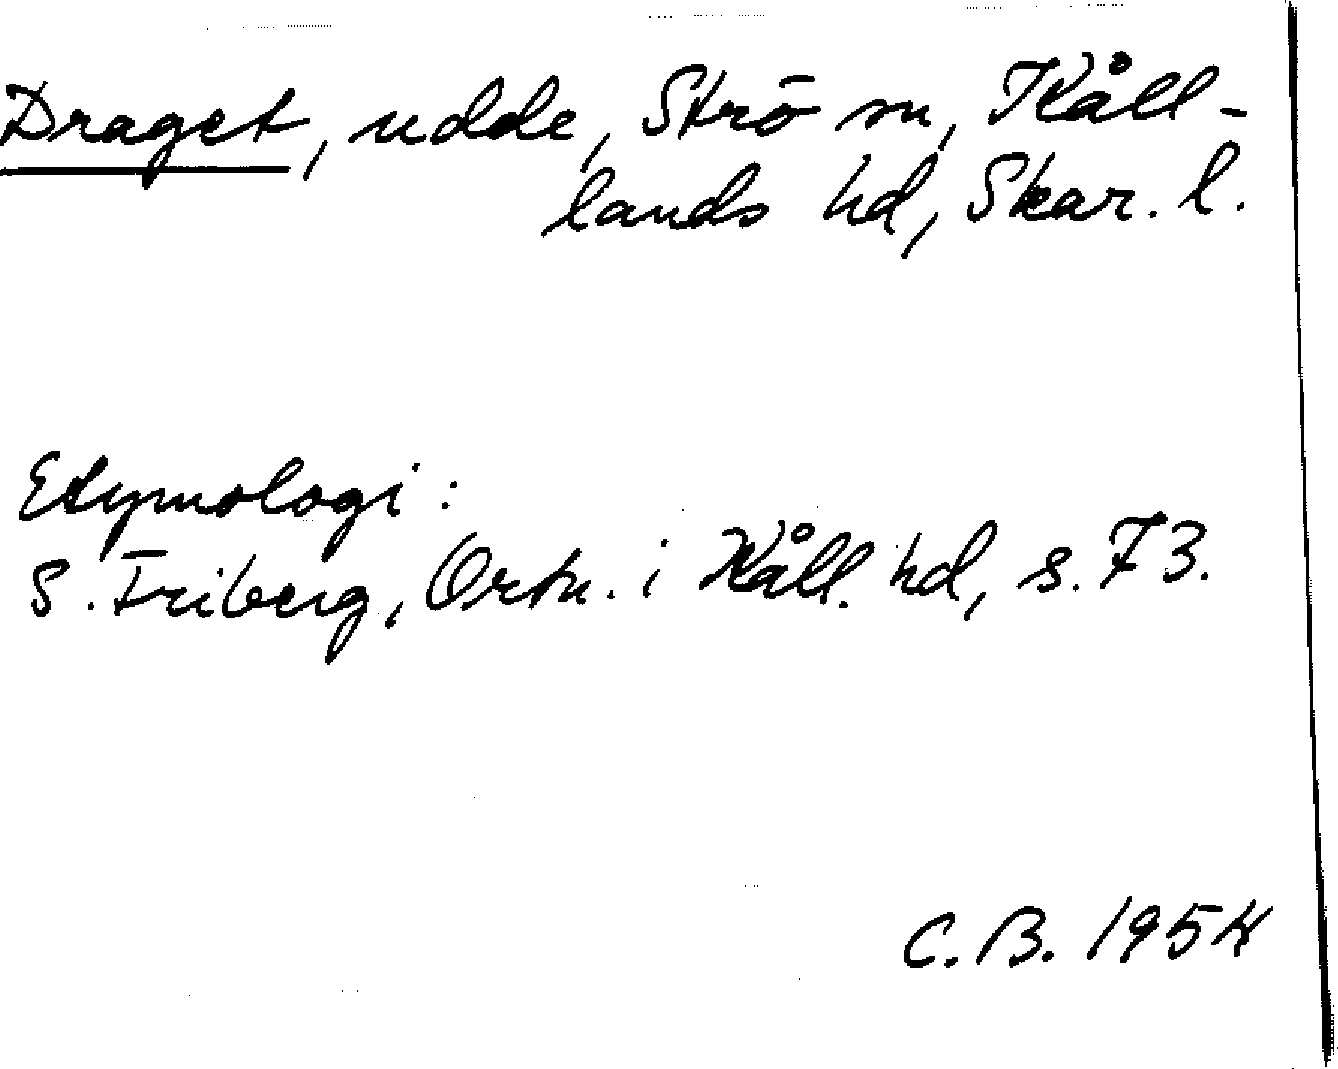 Draget, udde, Strö sn, Kåll-
lands hd, Skar. l.
Etymologi:
S. Friberg, Ortn. i Kåll. hd, s. 73.
C. B. 1954